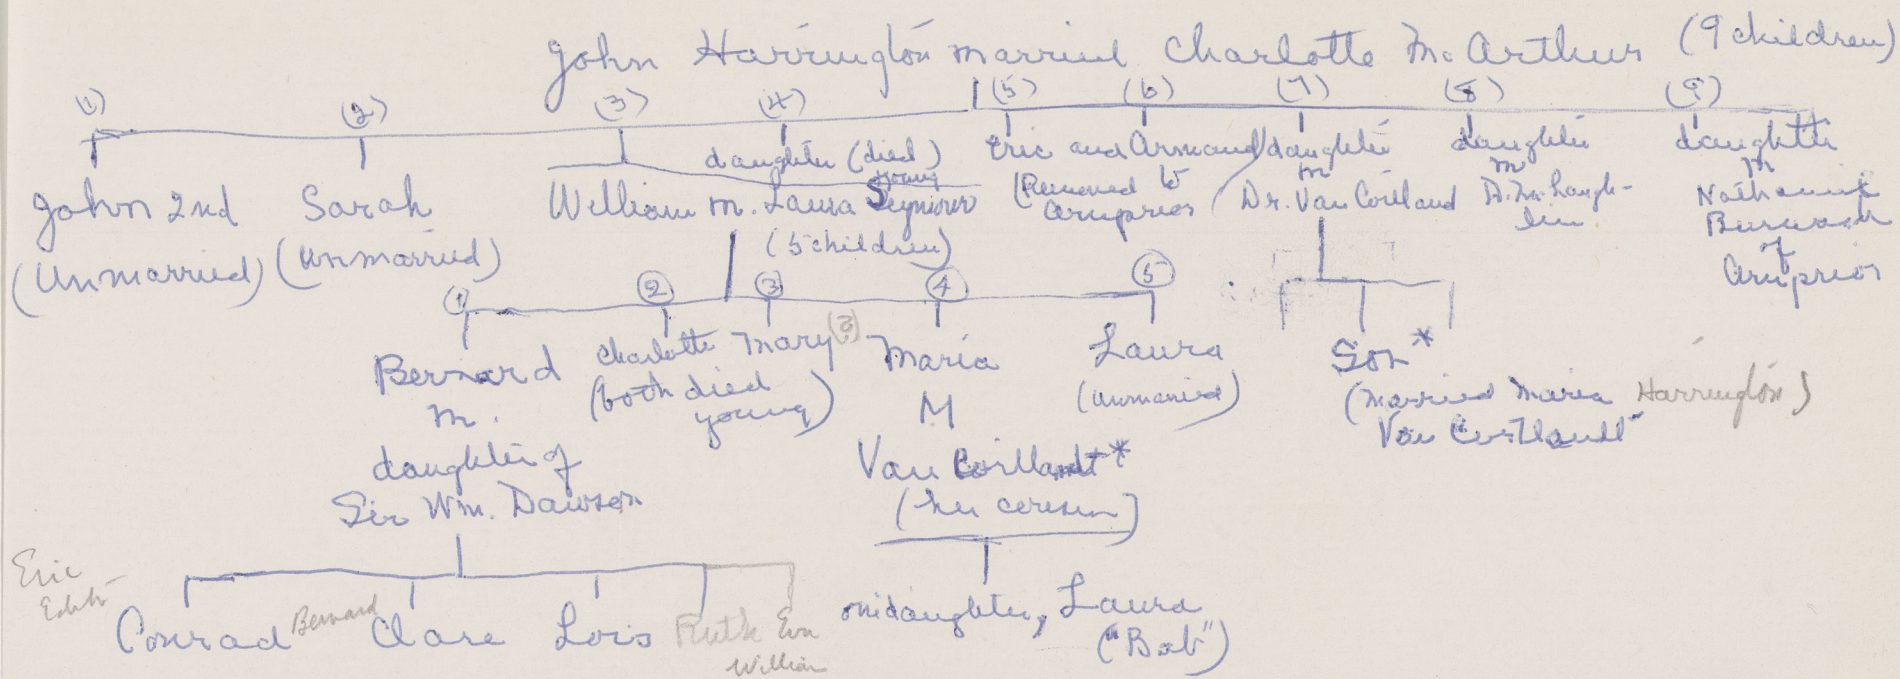 John Harrington married Charlotte McArthur (9 children)
(1) (2) (3) (4) (5) (6) (7) (8) (9)
John 2nd
(Unmarried)
Sarah
(unmarried)
William m. Laura Seymour
(5 children)
daughter (died
young)
Eric and Armand
(Removed to
Arnprior)
daughter
m
Dr. Van Cortland
daughter
m
D. McLaugh-
lin
daughter
m
Nathaniel
Burwash
of
Arnprior
1 2 3 4 5
Bernard
m.
daughter of
Sir Wm. Dawson
Charlotte Mary (?)
(both died
young)
Maria
M
Van Cortlandt*
(her cousin)
Laura
(unmarried)
Son*
(married Maria Harrington)
Van Cortlandt
Eric
Edith
Conrad Bernard Clare Lois Ruth Eva
William
one daughter, Laura
("Bob")